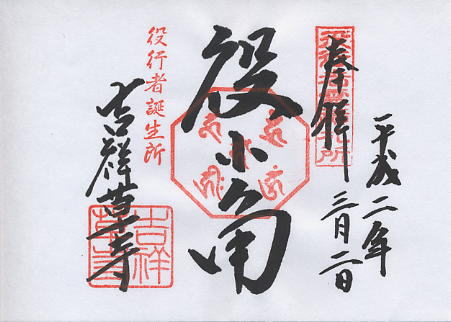 奉拝
平成二年
三月二日
役小角
役行者誕生所
吉祥草寺
吉祥草寺